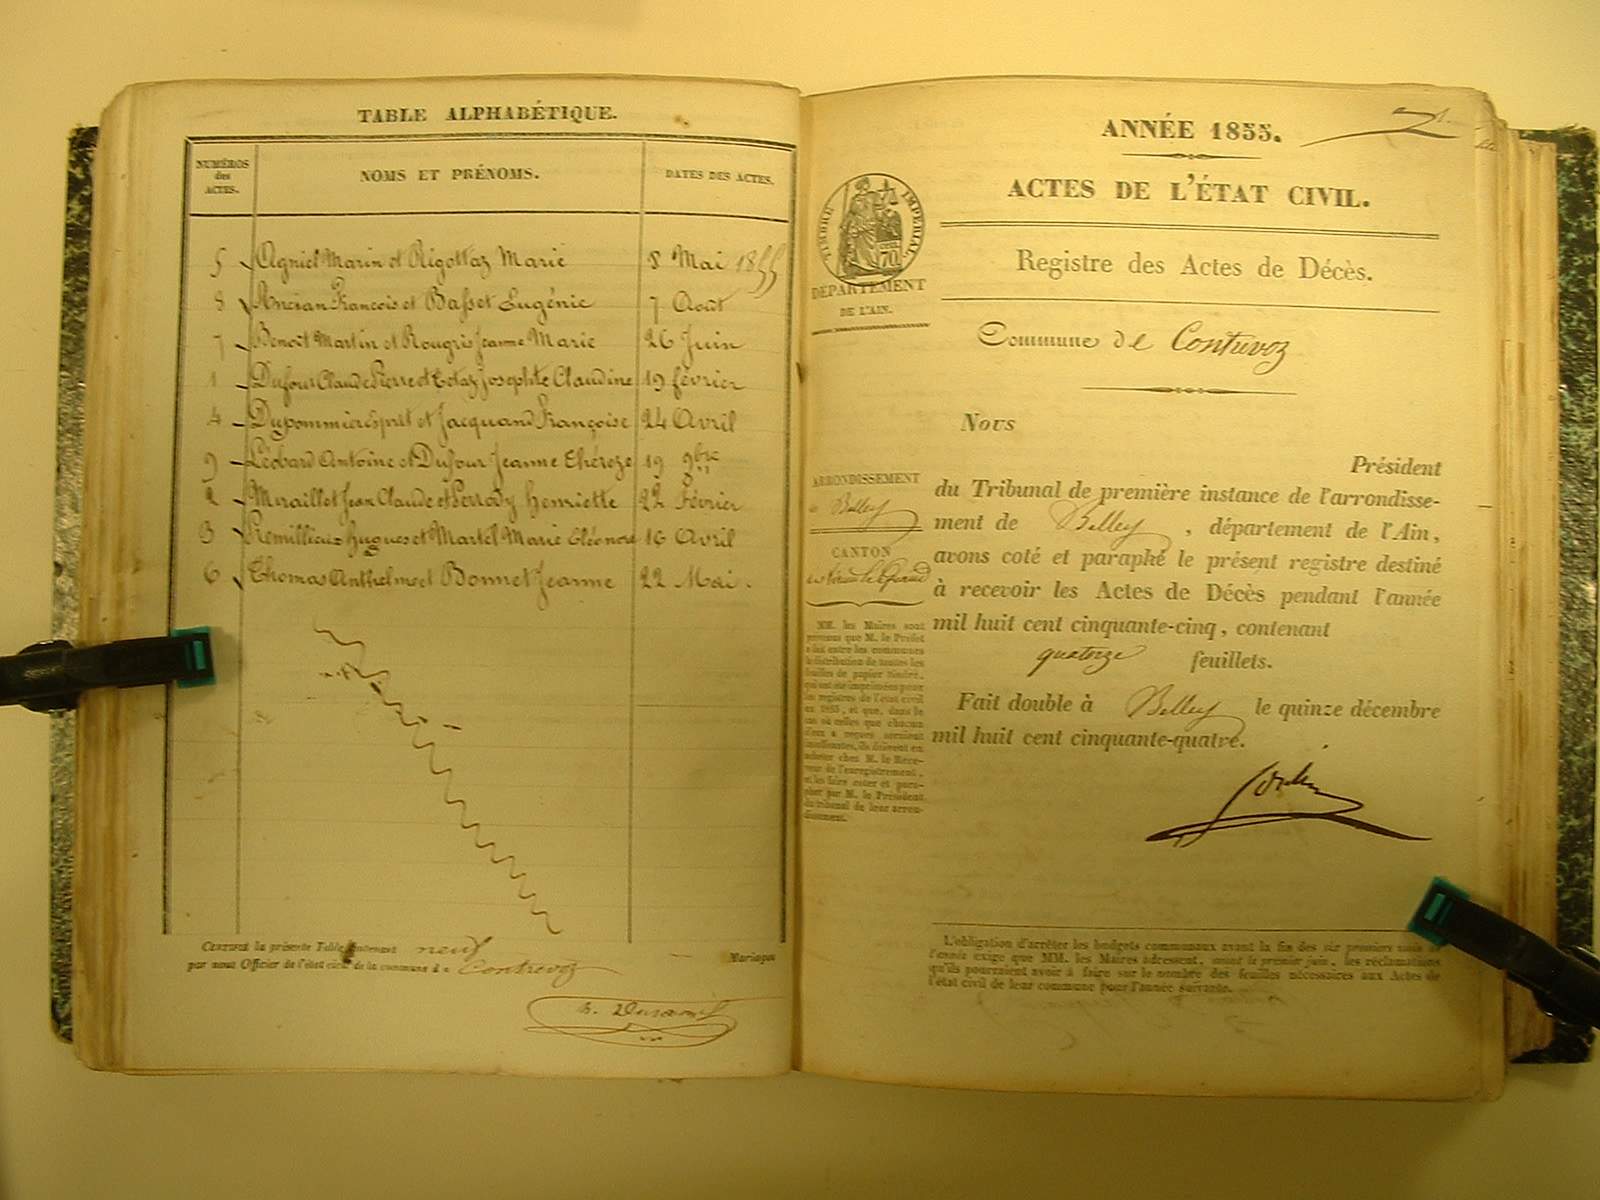 TABLE ALPHABÉTIQUE.
NUMÉROS des ACTES.
NOMS ET PRÉNOMS.
DATES DES ACTES.
5 Agniel Marin et Rigottaz Marie 8 Mai 1855
8 Ancian François et Basset Eugénie 7 Août
7 Benoît Martin et Rougris Jeanne Marie 26 Juin
1 Dufour Claude Pierre et josephte Claudine 19 février
4 Dupommier Esprit et Jacquand Françoise 24 Avril
9 Léobard Antoine et Dufour Jeanne Thérèze 19 9bre
2 Miraillet Jean Claude et Perrody henriette 22 Février
3 Remillieux hugues et Martel Marie Eléonore 16 Avril
6 Thomas Anthelme et Bonnet Jeanne 22 Mai.
CERTIFIÉ la présente Table contenant neuf Mariages
par nous Officier de l'état civil de la commune de Contrevoz
ANNÉE 1855.
ACTES DE L'ÉTAT CIVIL.
TIMBRE IMPERIAL
70
DÉPARTEMENT
DE L'AIN.
Registre des Actes de Décès.
Commune de Contrevoz
Nous
Président
du Tribunal de première instance de l'arrondisse-
ment de Belley, département de l'Ain,
avons coté et paraphé le présent registre destiné
à recevoir les Actes de Décès pendant l'année
mil huit cent cinquante-cinq, contenant
quatorze feuillets.
Fait double à Belley le quinze décembre
mil huit cent cinquante-quatre.
ARRONDISSEMENT
de Belley
CANTON
de Virieu le Grand
MM. les Maires sont
prévenus que M. le Préfet
a fait entre les communes
la distribution de toutes les
feuilles de papier timbré,
qui ont été imprimées pour
les registres de l'état civil
en 1855, et que, dans le
cas où celles que chacun
d'eux a reçues seraient
insuffisantes, ils doivent en
acheter chez M. le Rece-
veur de l'enregistrement,
et les faire coter et para-
pher par M. le Président
du tribunal de leur arron-
dissement.
L'obligation d'arrêter les budgets communaux avant la fin des six premiers mois de
l'année exige que MM. les Maires adressent, avant le premier juin, les réclamations
qu'ils pourraient avoir à faire sur le nombre des feuilles nécessaires aux Actes de
l'état civil de leur commune pour l'année suivante.